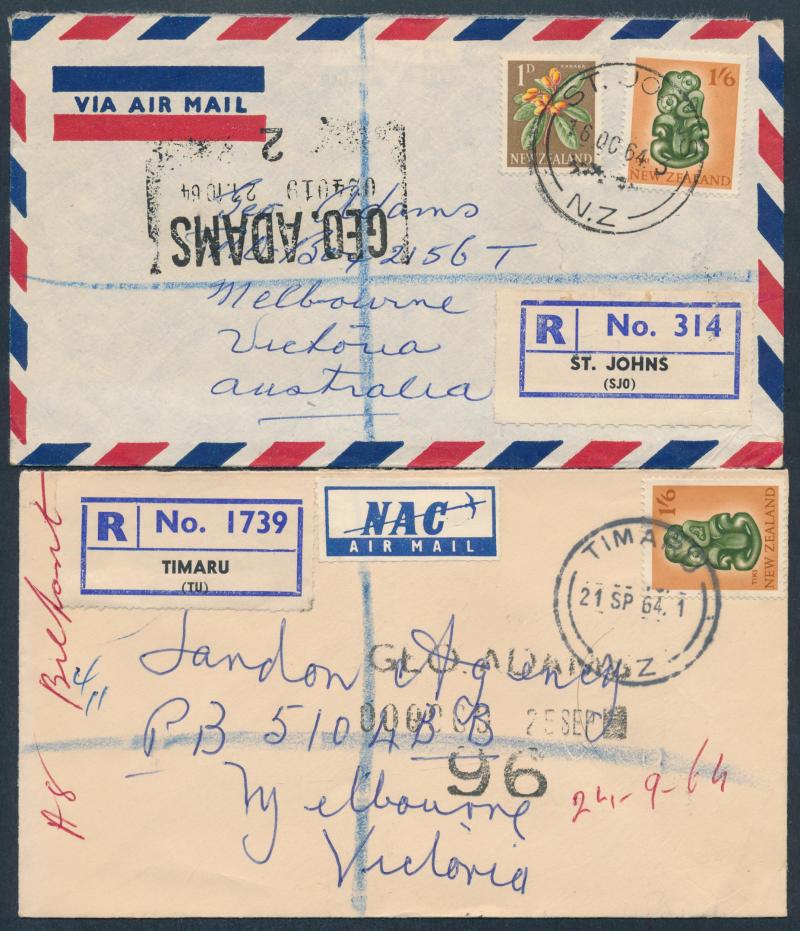 VIA AIR MAIL
1D
KARAKA
NEW ZEALAND
1/6
NEW ZEALAND
ST. JOHNS
16 OC 64.
N.Z
2
024019 21.10 64
GEO. ADAMS
Geo. Adams
Box 2156 T
Melbourne
Victoria
Australia
R No. 314
ST. JOHNS
(SJO)
R No. 1739
TIMARU
(TU)
NAC
AIR MAIL
1/6
TIKI
NEW ZEALAND
TIMARU
21 SP 64. 1
NZ
GEO. ADAMS
25 SEP
96
Landon Agency
PB 510 A BB
Melbourne
Victoria
24-9-64
4/11
A8